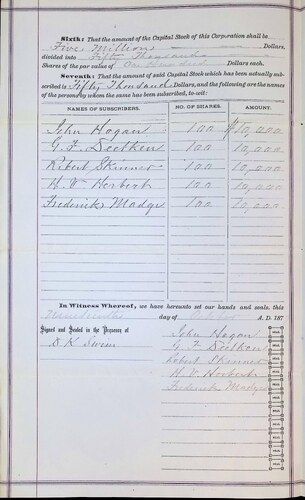 Sixth: That the amount of the Capital Stock of this Corporation shall be
Five Millions Dollars,
divided into Fifty Thousand
Shares of the par value of One Hundred Dollars each.
Seventh: That the amount of said Capital Stock which has been actually sub-
scribed is Fifty Thousand Dollars, and the following are the names
of the persons by whom the same has been subscribed, to-wit:
NAMES OF SUBSCRIBERS. NO. OF SHARES. AMOUNT.
John Hogan 100 $10,000
G. F. Deetken 100 10,000
Robert Skinner 100 10,000
H. V. Herbert 100 10,000
Frederick Madge 100 10,000
In Witness Whereof, we have hereunto set our hands and seals, this
day of October A. D. 187
Signed and Sealed in the Presence of
John Hogan
D. K. Swim
G. F. Deetken
Robert Skinner
H. V. Herbert
Frederick Madge